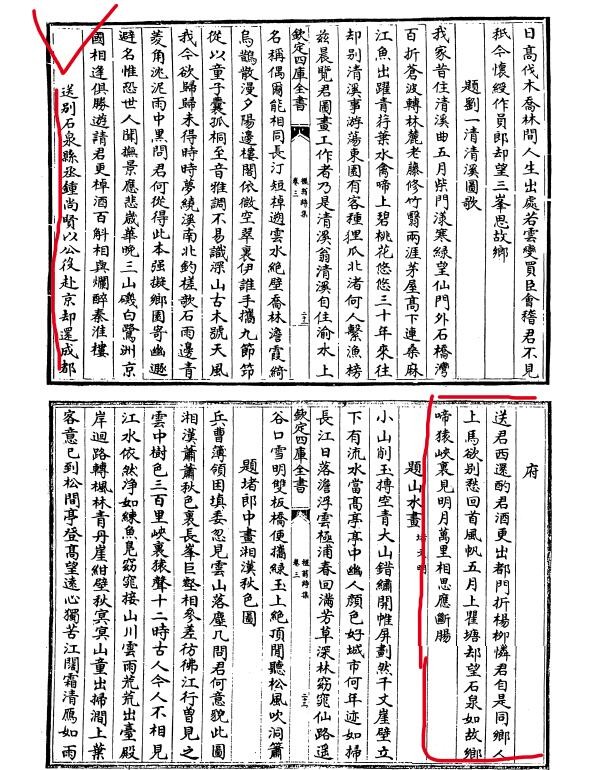 日高伐木喬林間人生出處若雲變買臣會稽君不見
祇今懷綬作員郎却望三峯思故鄉
題劉一清清溪圖歌
我家昔住清溪曲五月柴門漾寒綠望仙門外石橋灣
百折蒼波轉林麓老藤修竹翳兩涯茅屋高下連桑麻
江魚出躍青荇葉水禽啼上碧桃花悠悠三十年來往
却別清溪事游蕩東園有客種狸瓜北渚何人繫漁榜
茲晨覽君圖畫工作者乃是清溪翁清溪自住渝水上
欽定四庫全書
卷三
名稱偶爾能相同長汀短棹迴雲水絶壁喬林澹霞綺
烏鵲散漫夕陽邊樓閣依微空翠裏伊誰手攜九節筇
從以童子囊孤桐至音雅調不易識深山古木號天風
我今欲歸歸未得時時夢繞溪南北釣槎欹石雨邊青
菱角洮泥雨中黑問君何從得此本强擬鄉園寄幽遯
避名惟恐世人聞撫景應悲歲華晚三山磯白鷺洲京
國相逢俱勝遊請君更棹酒百斛相與爛醉秦淮樓
送别石泉縣丞鍾尚賢以公役赴京却還成都
府
送君西還酌君酒更出都門折楊柳憐君自是同鄉人
上馬欲别愁回首風帆五月上瞿塘却望石泉如故鄉
啼猿峽裏見明月萬里相思應斷腸
題山水畫
小山削玉摶空青大山錯繡開帷屏劃然千丈崖壁立
下有流水當高亭亭中幽人顔色好城市何年迹如掃
長江日落澹浮雲極浦春回滿芳草深林窈窕仙路遥
欽定四庫全書
卷三
谷口雪明雙板橋便攜綠玉上絶頂閒聽松風吹洞簫
題堵郎中畫湘漢秋色圖
兵曹簿領困填委忽見雲山落塵几問君何意貌此圖
湘漢蕭蕭秋色裏長峯巨壑相參差彷彿江行曽見之
雲中樹色三百里峽裏猿聲十二時古人今人不相見
江水依然净如練魚鳬窈窕接山川雲雨荒荒出臺殿
岸迴路轉楓林青丹崖紺壁秋冥冥山童出掃澗上葉
客意已到松間亭登高望遠心獨苦江闊霜清鴈如雨